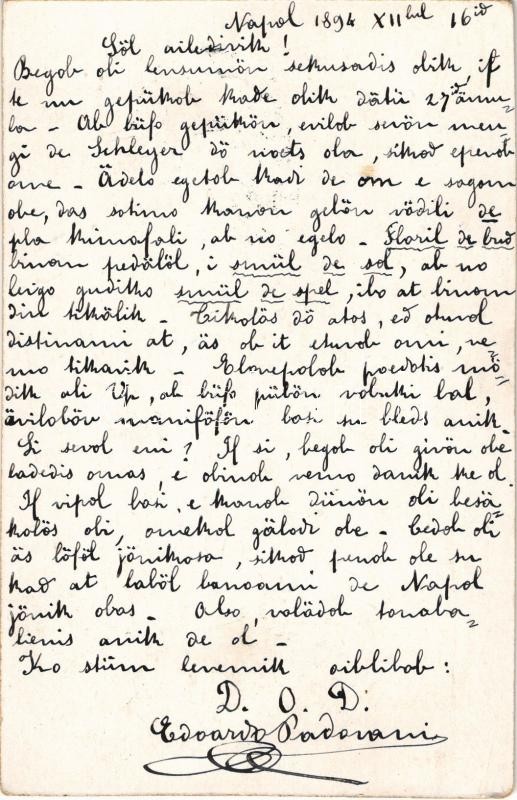 Napol 1894 XIIul 16id
Söl ailedivik!
Begob oli lensumön sekusadis olik, if
te nu gepükob kade olik dätü 27id ännu-
la - Ab büfo gepükön, evilob seivön men-
gi de Schleyer dö vots ola, sikod epenob
ome - Ädelo egetob kadi de om e sagom
obe, das sotimo kanon gebön vödili de
pla kimafali, ab no egelo - Floril de bud
binom pedälöl, i smiil de sol, ab no
leigo gudiko smiil de spel, ibo at binom
din tikälik - Cikolös dö atos, ed otuvol
distinami at, äs ob it etuvob omi, ve-
mo tikavik - Elonepolob poedotis mö-
dik ali Vp, ab büfo pübön vobuki bal,
äviloböv maniföfön basi su bleds anik -
Li sevol emi? If si, begob oli givön obe
ladedis omas, e obinob vemo danik ke ol.
If vipol basi, e kanob dünön oli besä-
kolös obi, omekol gälodi obe - Ledob oli
äs löföl jönikosa, sikod penob ole su
kad at laböl lanoami de Napol
jönik obas - Also, valädob sonaba-
lienis anik de ol -
Ko stüm levemik oiblibob:
D. O. D.
Edoardo Padovani